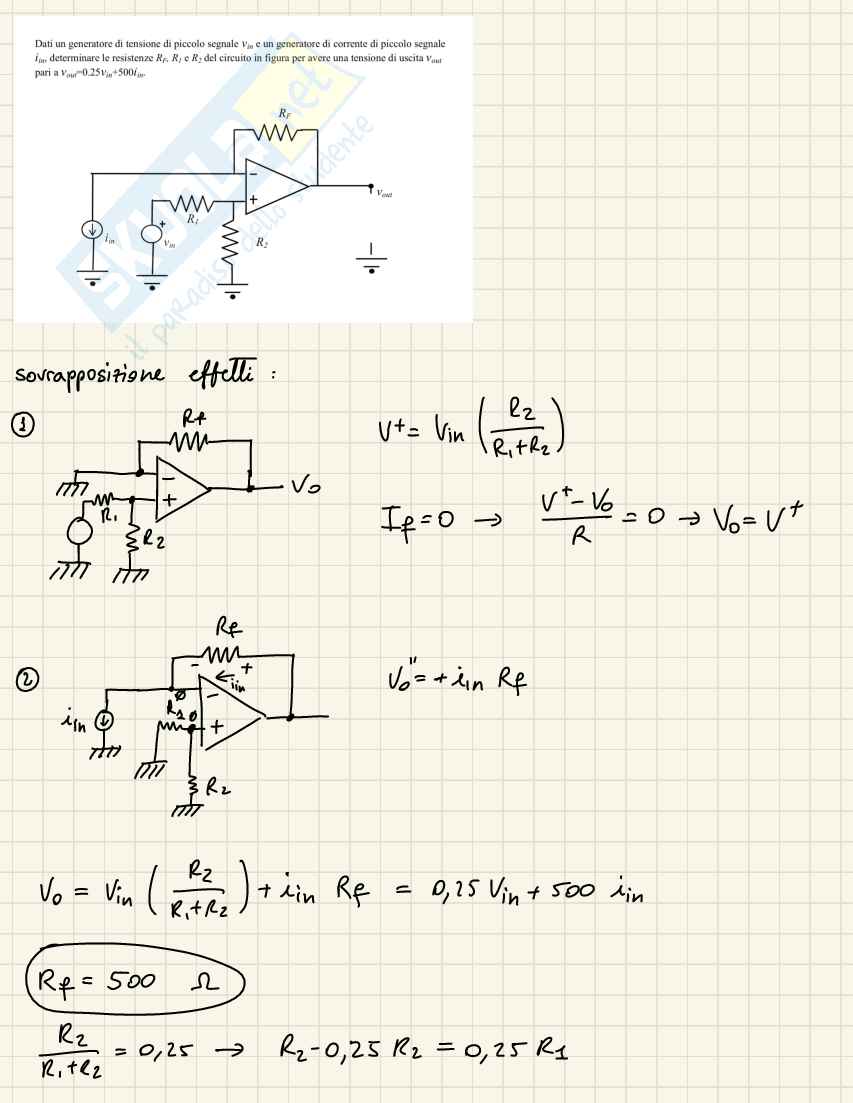 Dati un generatore di tensione di piccolo segnale vin e un generatore di corrente di piccolo segnale
iin, determinare le resistenze RF, R1 e R2 del circuito in figura per avere una tensione di uscita vout
pari a vout=0.25vin+500iin.
RF
−
+
vout
R1
+
iin
vin
R2
SKUOLA.net
il paradiso dello studente
sovrapposizione effetti :
①
Rf
−
+
Vo
R1
R2
V+ = Vin (R2 / (R1+R2))
If = 0 → (V+ − Vo) / R = 0 → Vo = V+
②
Rf
− +
iin
ø
−
iin
R1 ø
+
R2
Vo'' = + iin Rf
Vo = Vin (R2 / (R1+R2)) + iin Rf = 0,25 Vin + 500 iin
Rf = 500 Ω
R2 / (R1+R2) = 0,25 → R2 − 0,25 R2 = 0,25 R1